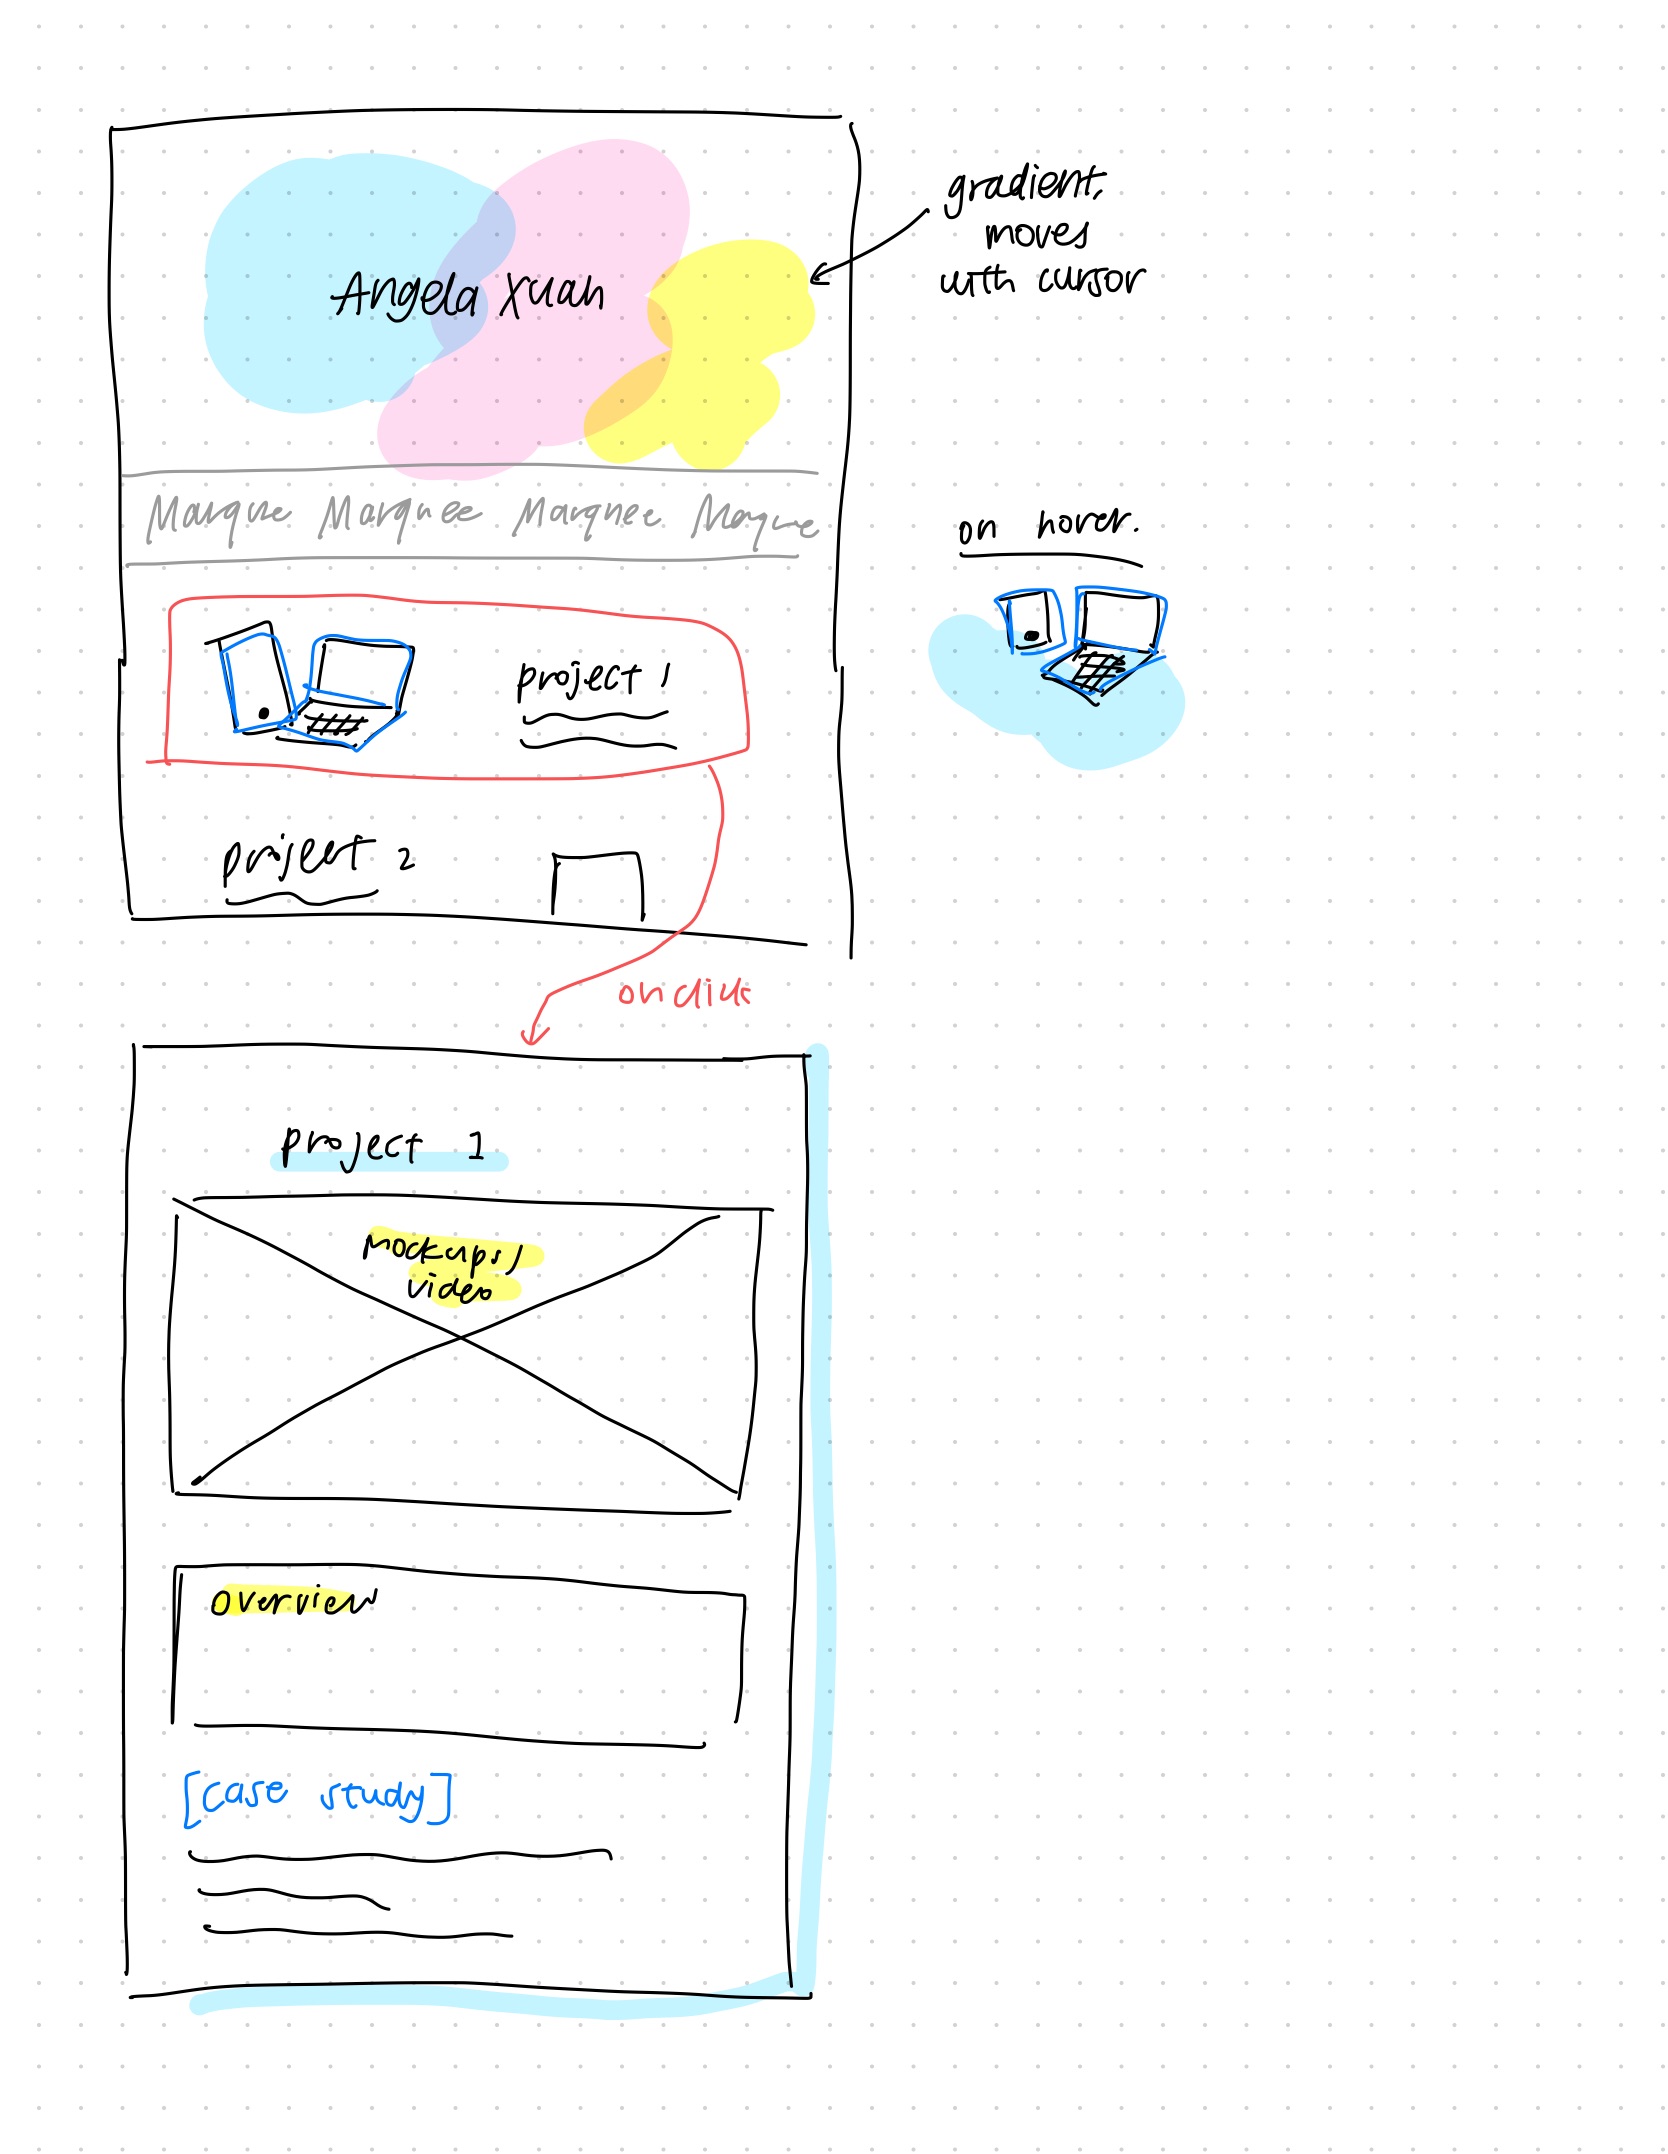 Angela Xuan
gradient,
moves
with cursor
Marque Marquee Marquee Marque
on hover.
project 1
project 2
on click
project 1
mockups/
video
overview
[case study]